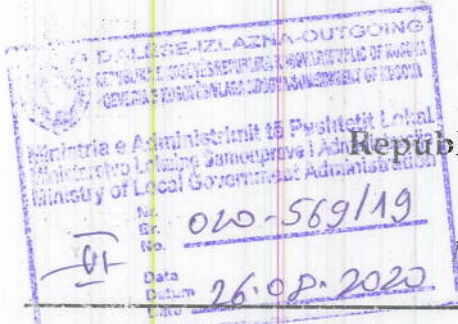 DALËSE-IZLAZNA-OUTGOING
Ministria e Administrimit të Pushtetit Lokal
Ministarstvo Lokalne Samouprave i
Ministry of Local Government Administration
Republ
Nr.
Br.
No.
020-569/19
VI
Data
Datum
Date
26.08.2020